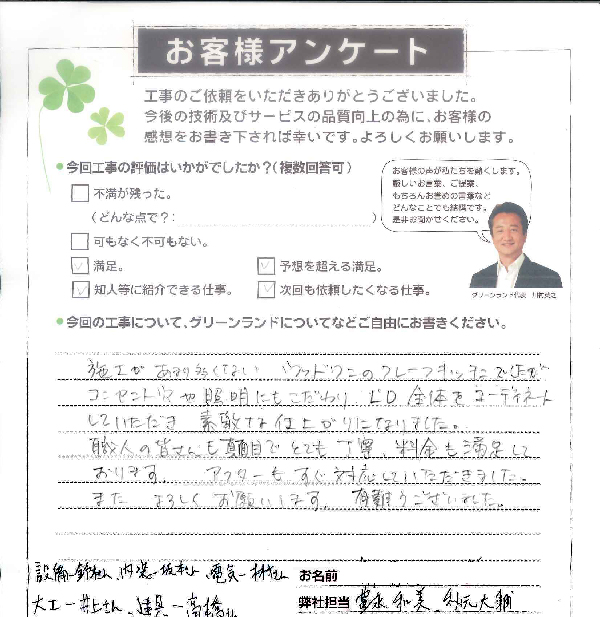 お客様アンケート
工事のご依頼をいただきありがとうございました。
今後の技術及びサービスの品質向上の為に、お客様の
感想をお書き下されば幸いです。よろしくお願いします。
•今回工事の評価はいかがでしたか？(複数回答可)
不満が残った。
(どんな点で？: )
可もなく不可もない。
満足。
予想を超える満足。
知人等に紹介できる仕事。
次回も依頼したくなる仕事。
お客様の声が私たちを動くします。
厳しいお言葉、ご提案、
もちろんお褒めの言葉など
どんなことでも結構です。
是非お聞かせください。
グリーンランド代表
•今回の工事について、グリーンランドについてなどご自由にお書きください。
施工があまり多くない ウッドワンのフレームキッチンでしたが
コンセントや照明にもこだわり LD全体をコーディネート
していただき 素敵な仕上がりになりました。
職人の皆さんも真面目でとても丁寧、料金も満足して
おります。 アフターもすぐ対応していただきました。
また よろしくお願いします。 有難うございました。
設備-鈴木さん、内装-坂本さん、電気-
お名前
大工-井上さん、建具-高橋さん
弊社担当 和美、 大輔